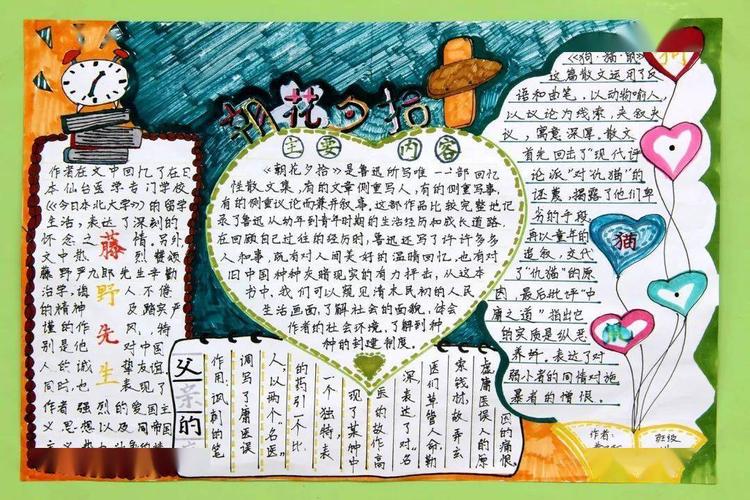 朝花夕拾
主要内容
《朝花夕拾》是鲁迅所写唯一一部回忆
性散文集,有的文章侧重写人,有的侧重写事,
有的侧重议论而兼并叙事。这部作品比较完整地记
录了鲁迅从幼年到青年时期的生活经历和成长道路.
在回顾自己过往的经历时,鲁迅还写了许许多多
人和事,既有对人间美好的温晴回忆,也有对
旧中国种种灰暗现实的有力抨击,从这本
书中,我们可以窥见清末民初的人民
生活画面,了解社会的面貌,体会
作者的社会环境,了解到种
种的封建制度.
作者在文中回忆了在日
本仙台医学专门学校
《今日本北大学》的留学
生活,表达了深刻的
怀念之情.另外
文中散烈赞颂
藤野严九郎先生辛勤
治学,诲人不倦
的精神及踏实严
谨的作风,特
别是他对中国
人的诚挚友谊
同时,也表现了
作者强烈的爱国主
义思想以及同帝国
藤野先生
《狗·猫·鼠》
这篇散文运用了反
语和曲笔,以动物喻人,
以议论为线索,夹叙夹
议,寓意深厚.散文
首先回击了"现代评
论派"对"仇猫"的
诬蔑,揭露了他们卑
劣的手段
再以童年的
追叙,交代
了"仇猫"的原
因,最后批评"中
庸之道"指出它
的实质是纵恶
养奸,表达了对
弱小者的同情对施
暴者的憎恨.
狗
猫
父亲的
作用:讽刺的笔
调写了庸医误
人,以两个"名医"
的药引一个比
一个独特,表
现了某种中
医的故作高
深表达了对"名
医们草管人命.勒
索钱财.故弄玄
虚庸医误人的原
因的痛恨.
作者:
班级